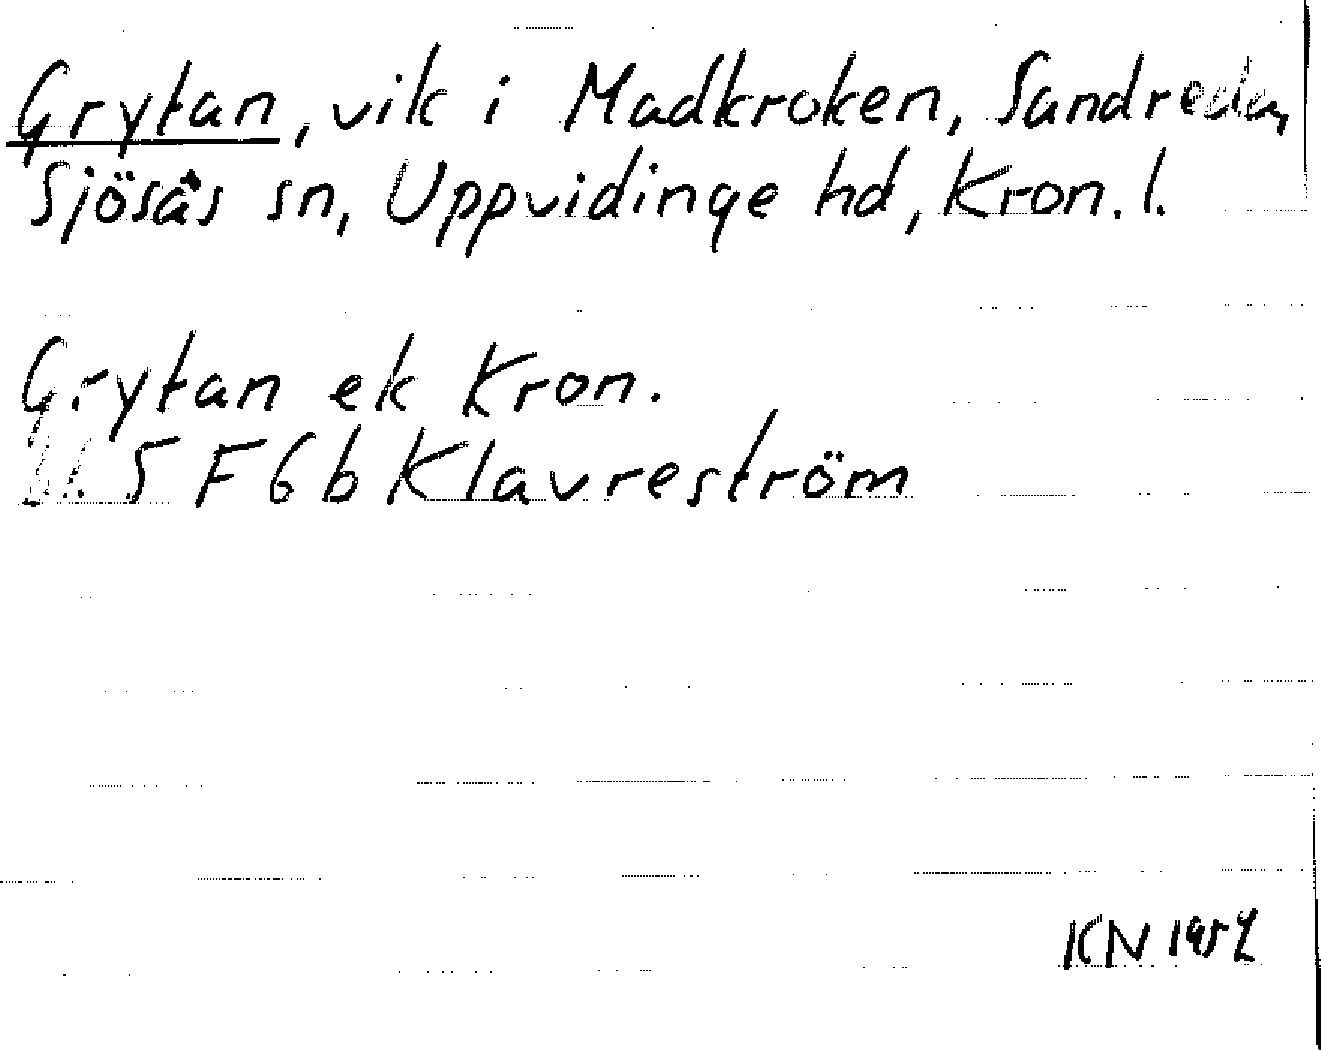 Grytan, vik i Madkroken, Sandreda,
Sjösås sn, Uppvidinge hd, Kron. l.
Grytan ek Kron.
bl. 5 F 6 b Klavreström
KN